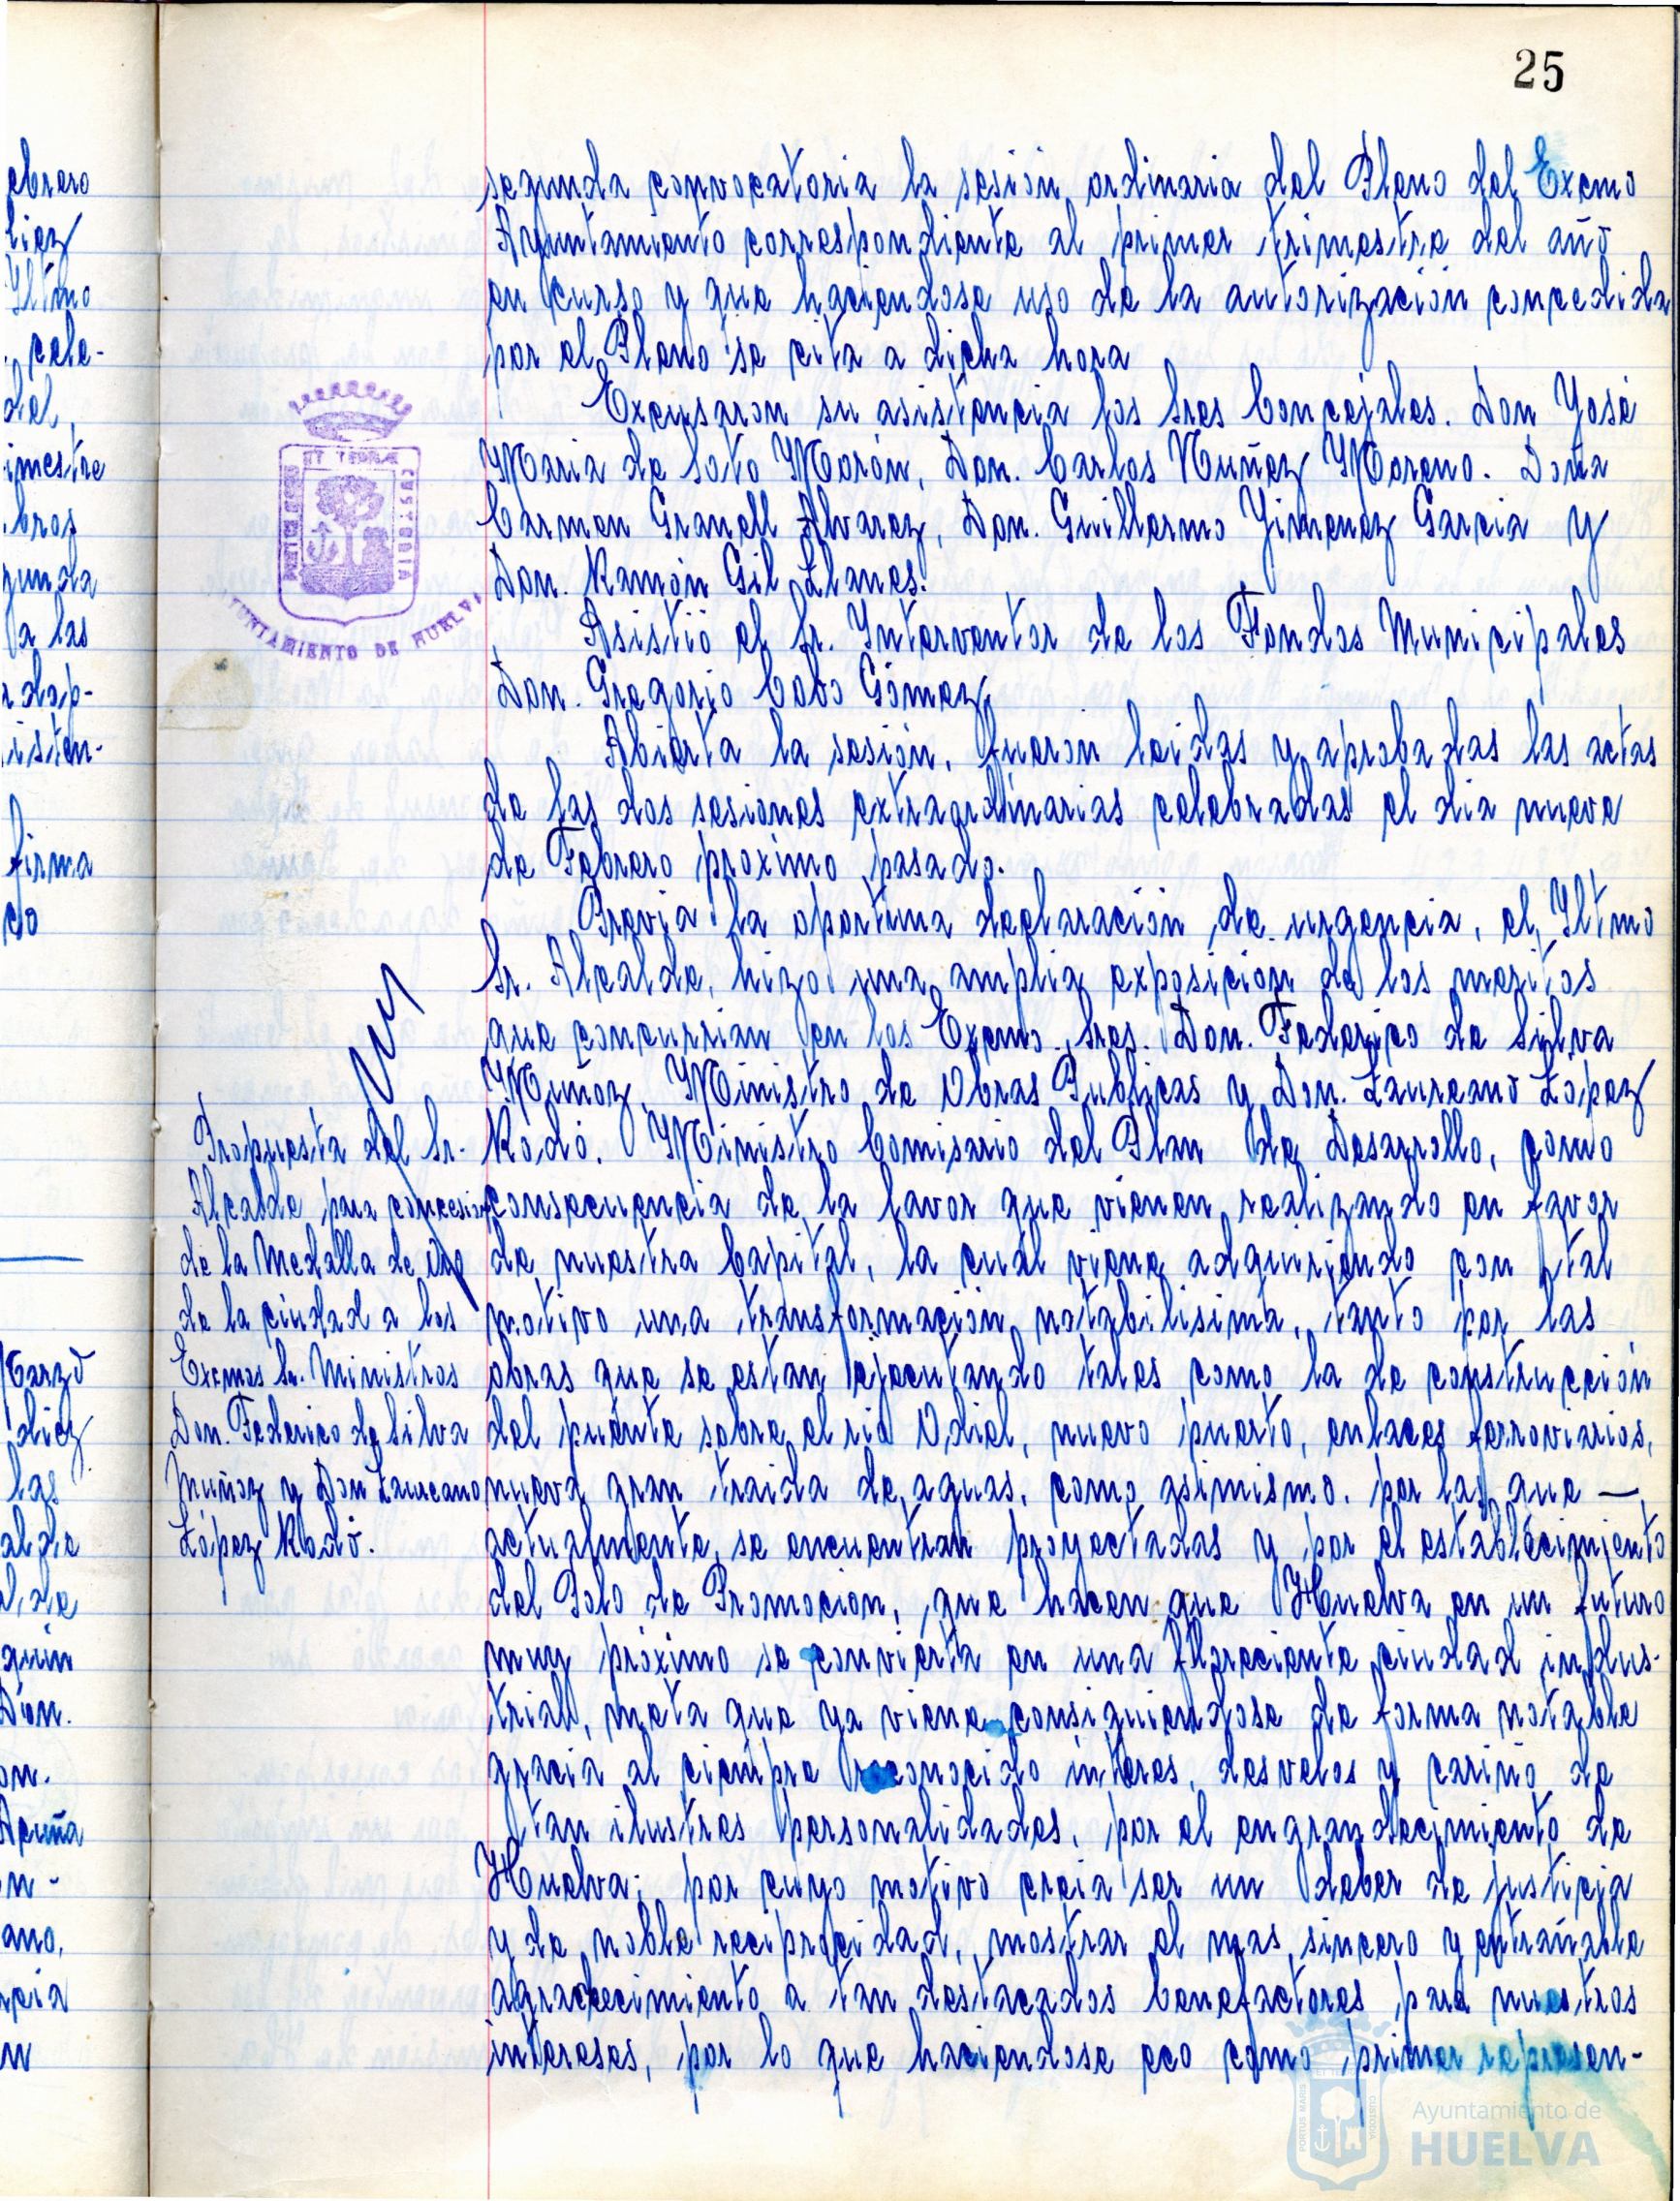 25
segunda convocatoria la sesión ordinaria del Pleno del Excmo
Ayuntamiento correspondiente al primer trimestre del año
en curso y que haciendose uso de la autorización concedida
por el Pleno se cita a dicha hora
Excusaron su asistencia los Sres Concejales. Don José
Maria de Soto Morón, Don. Carlos Nuñez Moreno. Doña
Carmen Granell Alvarez, Don. Guillermo Jimenez Garcia y
Don. Ramón Gil Llanes.
Asistió el Sr. Interventor de los Fondos Municipales
Don. Gregorio Cobo Gómez,
Abierta la sesión, fueron leidas y aprobadas las actas
de las dos sesiones extraordinarias celebradas el dia nueve
de Febrero proximo pasado.
Previa la oportuna declaración de urgencia, el Iltmo
Sr. Alcalde, hizo una amplia exposición de los meritos
que concurrian en los Excmo. Sres. Don. Federico de Silva
Muñoz, Ministro de Obras Publicas y Don. Laureano López
Rodó. Ministro Comisario del Plan de Desarrollo, como
consecuencia de la lavor que vienen realizando en favor
de nuestra Capital, la cual viene adquiriendo con tal
motivo una transformación notabilisima, tanto por las
obras que se estan ejecutando tales como la de construcción
del puente sobre el rio Odiel, nuevo puerto, enlaces ferroviarios,
nueva gran traida de aguas, como asimismo. por las que —
actualmente se encuentran proyectadas y por el establecimiento
del Polo de Promocion, que hacen que Huelva en un futuro
muy próximo se convierta en una floreciente ciudad indus-
trial, meta que ya viene consiguiendose de forma notable
gracia al ciempre reconocido interes, desvelos y cariño de
tan ilustres personalidades, por el engrandecimiento de
Huelva; por cuyo motivo creia ser un deber de justicia
y de noble reciprocidad, mostrar el mas sincero y entrañable
agradecimiento a tan destacados benefactores para nuestros
intereses, por lo que haciendose eco como primer represen-
Propuesta del Sr.
Alcalde para concesion
de la Medalla de Oro
de la ciudad a los
Excmos Sr. Ministros
Don. Federico de Silva
Muñoz y Don Laureano
López Rodó.
ET TERRAE
CUSTODIA
PORTUS MARIS
AYUNTAMIENTO DE HUELVA
ebrero
diez
Iltmo
cele-
del
imestre
bros
gunda
a las
isten-
firma
co
Marzo
diez
las
alde
l. de
quin
Don.
on.
Acuña
n-
ano,
ncia
n
Ayuntamiento de
HUELVA